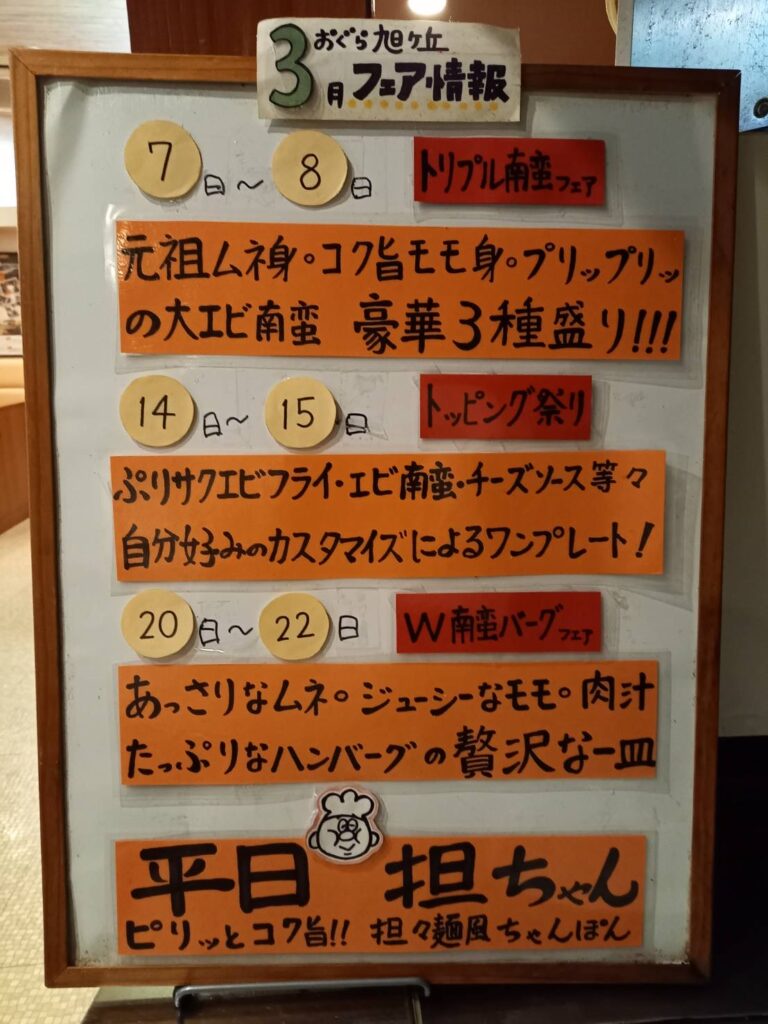 おぐら旭ケ丘
3月フェア情報
7日〜8日 トリプル南蛮フェア
元祖ムネ身。コク旨モモ身。プリップリッ
の大エビ南蛮 豪華3種盛り!!!
14日〜15日 トッピング祭り
ぷりサクエビフライ・エビ南蛮・チーズソース等々
自分好みのカスタマイズによるワンプレート!
20日〜22日 W南蛮バーグフェア
あっさりなムネ。ジューシーなモモ。肉汁
たっぷりなハンバーグの贅沢な一皿
平日 担ちゃん
ピリッとコク旨!! 担々麺風ちゃんぽん